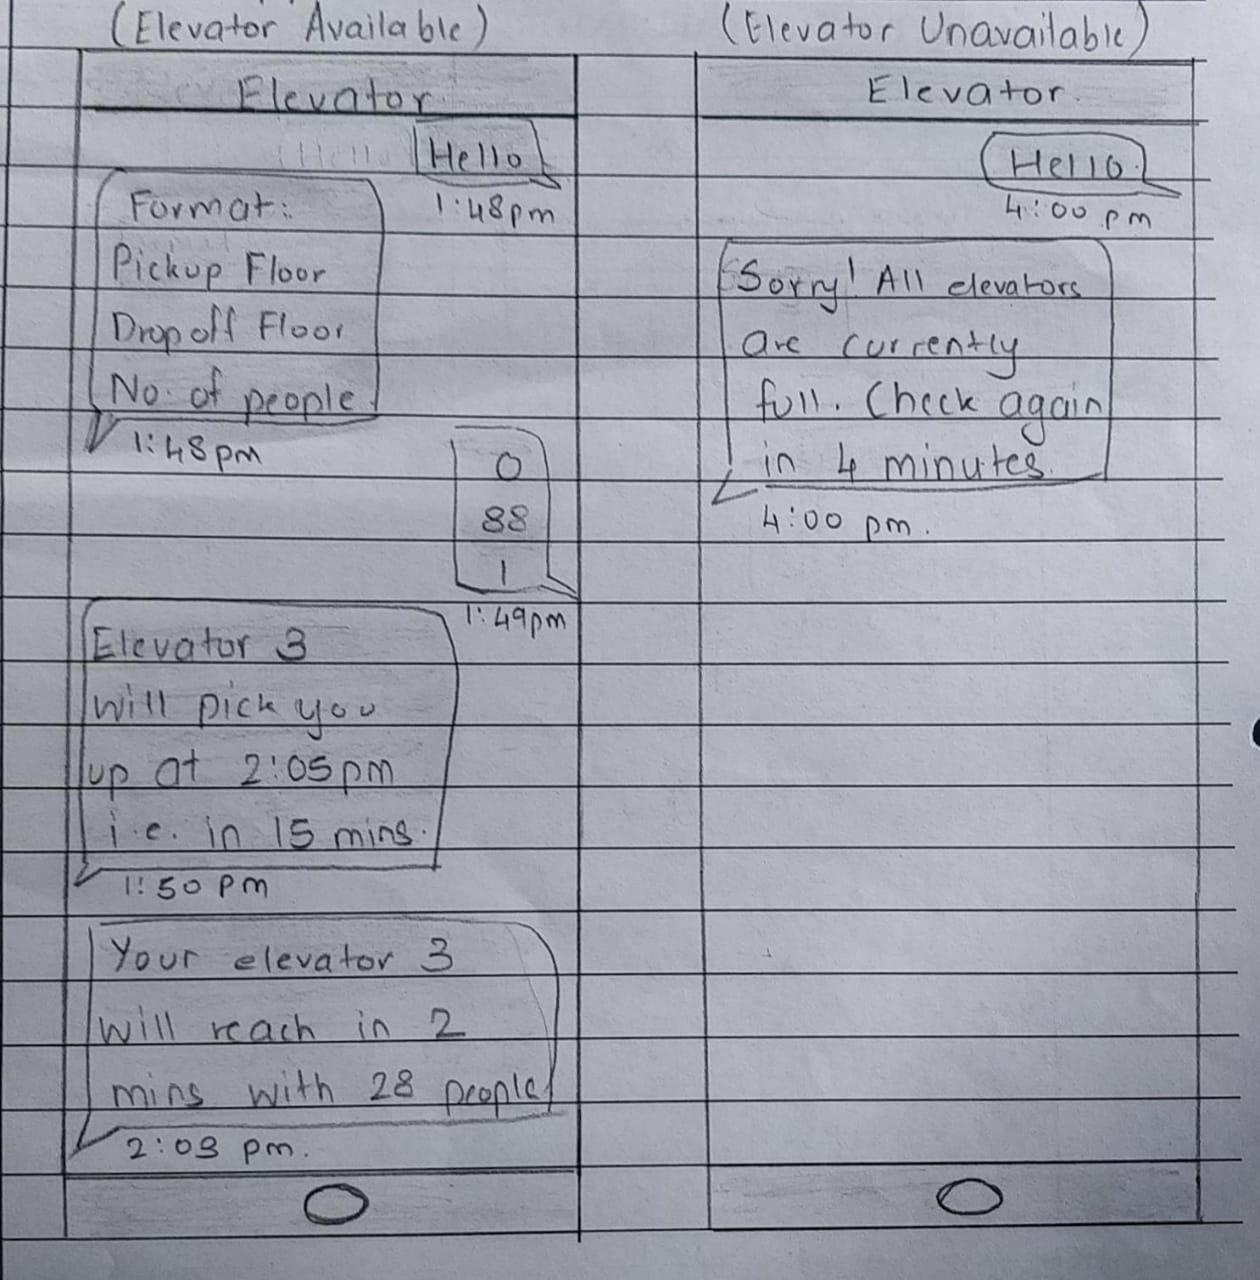 (Elevator Available)
Elevator
Hello
1:48pm
Format:
Pickup Floor
Drop off Floor
No. of people
1:48pm
0
88
1
1:49pm
Elevator 3
will pick you
up at 2:05pm
i.e. in 15 mins.
1:50 pm
Your elevator 3
will reach in 2
mins with 28 people
2:03 pm.
(Elevator Unavailable)
Elevator
Hello.
4:00 pm
Sorry! All elevators
are currently
full. Check again
in 4 minutes.
4:00 pm.